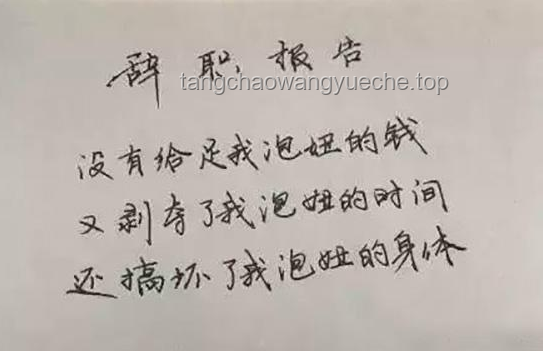 辞职报告
tangchaowangyueche.top
没有给足我泡妞的钱
又剥夺了我泡妞的时间
还搞坏了我泡妞的身体